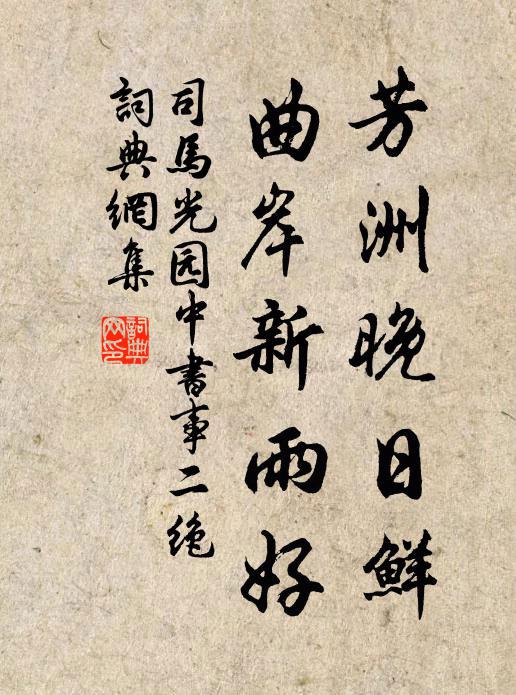 芳洲晚日鮮
曲岸新雨好
司馬光园中書事二绝
詞典網集
詞典网印